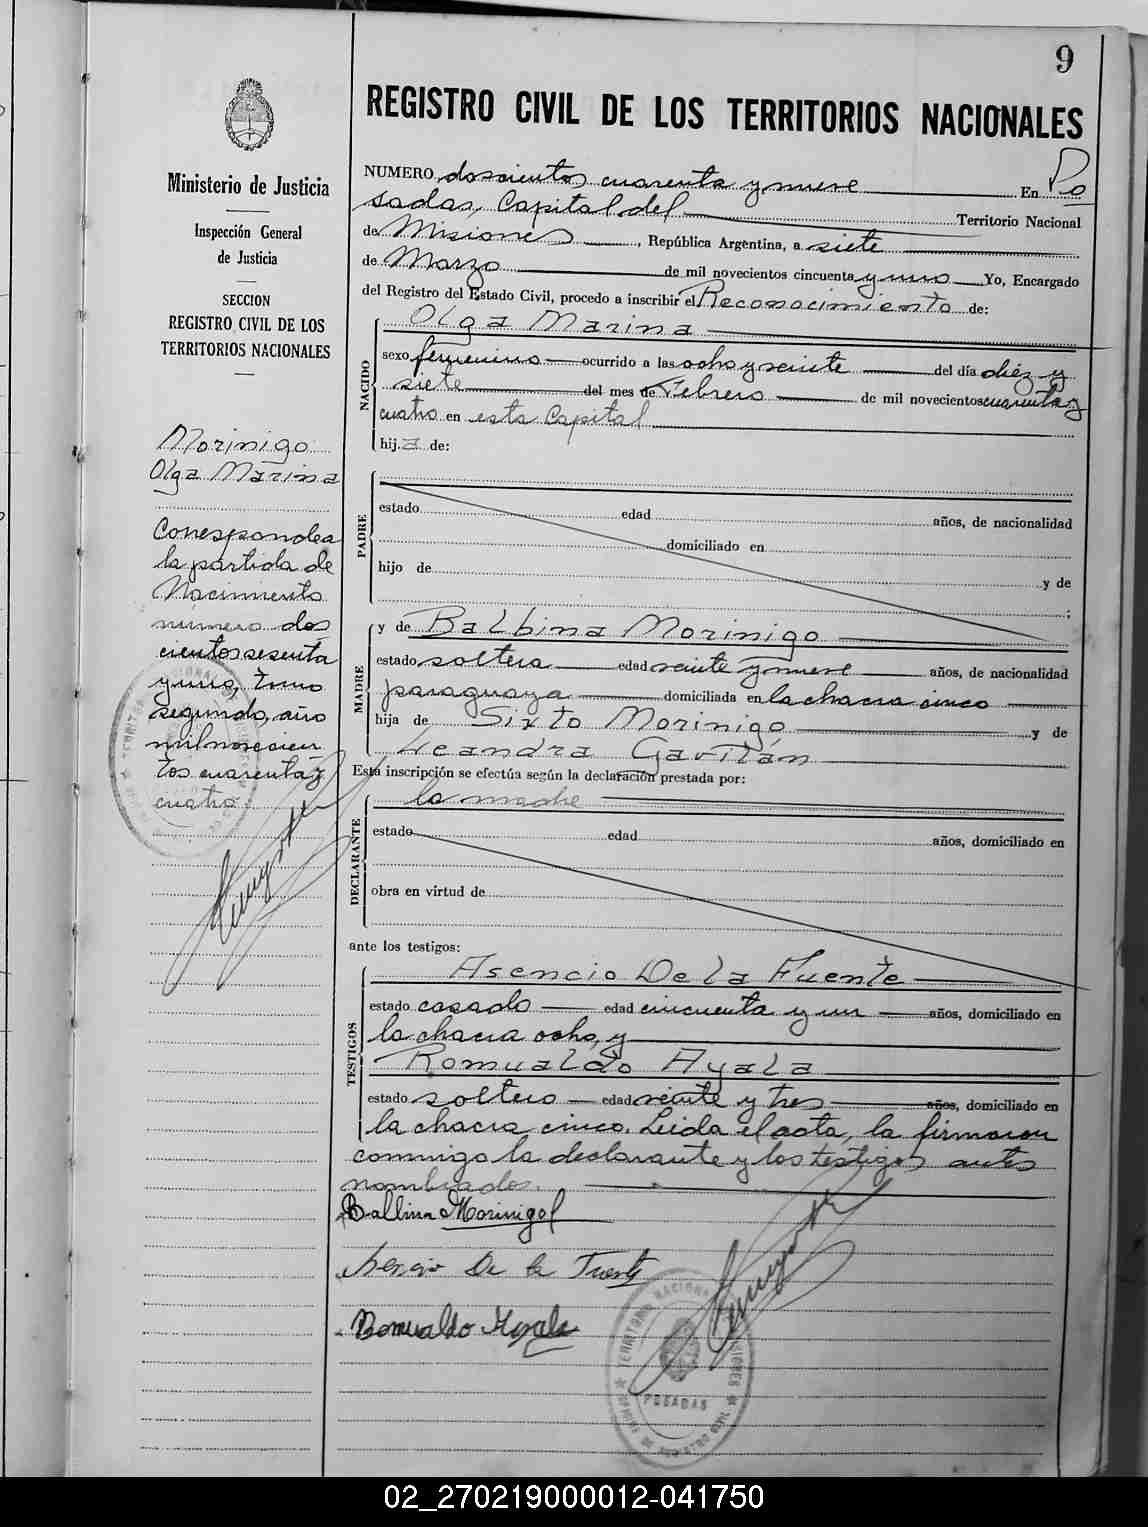 9
REGISTRO CIVIL DE LOS TERRITORIOS NACIONALES
Ministerio de Justicia
Inspección General
de Justicia
SECCION
REGISTRO CIVIL DE LOS
TERRITORIOS NACIONALES
Morinigo
Olga Marina
Corresponde a
la partida de
Nacimiento
número dos
cientos sesenta
y uno, tomo
segundo, año
mil novecien
tos cuarenta y
cuatro.
NUMERO doscientos cuarenta y nueve En Po
sadas, Capital del Territorio Nacional
de Misiones, República Argentina, a siete
de Marzo de mil novecientos cincuenta y uno Yo, Encargado
del Registro del Estado Civil, procedo a inscribir el Reconocimiento de:
NACIDO
Olga Marina
sexo femenino ocurrido a las ocho y veinte del día diéz y
siete del mes de Febrero de mil novecientos cuarenta y
cuatro en esta Capital
hija de:
PADRE
estado edad años, de nacionalidad
domiciliado en
hijo de y de
;
MADRE
y de Balbina Morinigo
estado soltera edad veinte y nueve años, de nacionalidad
paraguaya domiciliada en la chacra cinco
hija de Sixto Morinigo y de
Leandra Gavilán
Esta inscripción se efectúa según la declaración prestada por:
DECLARANTE
la madre
estado edad años, domiciliado en
obra en virtud de
ante los testigos:
TESTIGOS
Asencio De la Fuente
estado casado edad cincuenta y un años, domiciliado en
la chacra ocho, y
Romualdo Ayala
estado soltero edad veinte y tres años, domiciliado en
la chacra cinco. Leida el acta, la firmaron
conmigo la declarante y los testigos antes
nombrados.
Balbina Morinigo
De la Fuente
Romualdo Ayala
TERRITORIO NACIONAL
MISIONES
POSADAS
02_270219000012-041750